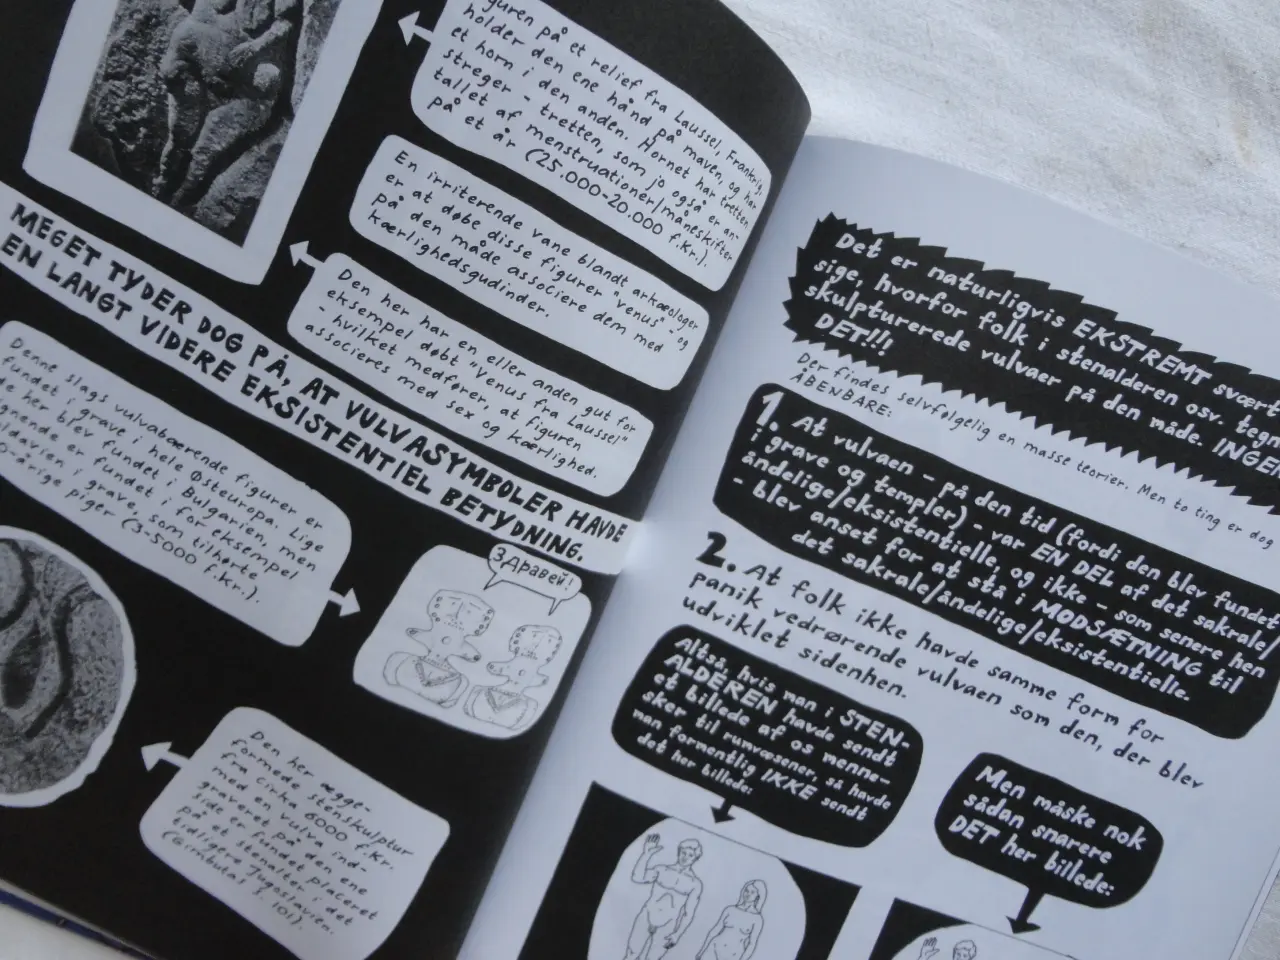 guren på et relief fra Laussel, Frankrig,
holder den ene hånd på maven, og har
et horn i den anden. Hornet har tretten
streger - tretten, som jo også er an-
tallet af menstruationer/måneskifter
på et år (25.000-20.000 f.Kr.).
En irriterende vane blandt arkæologer
er at døbe disse figurer "Venus" - og
på den måde associere dem med
kærlighedsgudinder.
Den her har en eller anden gut for
eksempel døbt "Venus fra Laussel"
- hvilket medfører, at figuren
associeres med sex og kærlighed.
MEGET TYDER DOG PÅ, AT VULVASYMBOLER HAVDE
EN LANGT VIDERE EKSISTENTIEL BETYDNING.
Denne slags vulvabærende figurer er
fundet i grave i hele Østeuropa. Lige
de her blev fundet i Bulgarien, men
lignende er fundet i for eksempel
i grave, som tilhørte
-årige piger (3-5000 f.Kr.).
Здравей!
Den her ægge-
formede stenskulptur
fra cirka 6000 f.Kr.
med en vulva ind-
graveret på den ene
side er fundet placeret
på et stenalter i det
tidligere Jugoslavien.
(Gimbutas s. 101).
Det er naturligvis EKSTREMT svært
sige, hvorfor folk i stenalderen osv. tegn
skulpturerede vulvaer på den måde. INGEN
DET!!!
Der findes selvfølgelig en masse teorier. Men to ting er dog
ÅBENBARE:
1. At vulvaen - på den tid (fordi den blev fundet
i grave og templer) - var EN DEL af det sakrale/
åndelige/eksistentielle, og ikke - som senere hen
- blev anset for at stå i MODSÆTNING til
det sakrale/åndelige/eksistentielle.
2. At folk ikke havde samme form for
panik vedrørende vulvaen som den, der blev
udviklet sidenhen.
Altså, hvis man i STEN-
ALDEREN havde sendt
et billede af os menne-
sker til rumvæsener, så havde
man formentlig IKKE sendt
det her billede:
Men måske nok
sådan snarere
DET her billede: